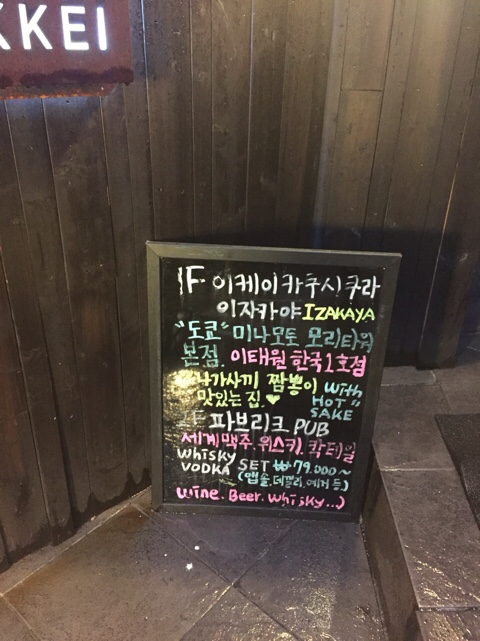 KKEI
1F 이케이카쿠시쿠라
이자카야 IZAKAYA
"도쿄" 미나모토 모리타워
본점. 이태원 한국1호점
"나가사끼 짬뽕이 with
맛있는 집.♥ HOT"
SAKE
2F 파브리크 PUB
세계맥주. 위스키. 칵테일
whisky
VODKA SET ₩79.000~
(앱솔.데낄라.예거 등)
wine. Beer. whisky...)